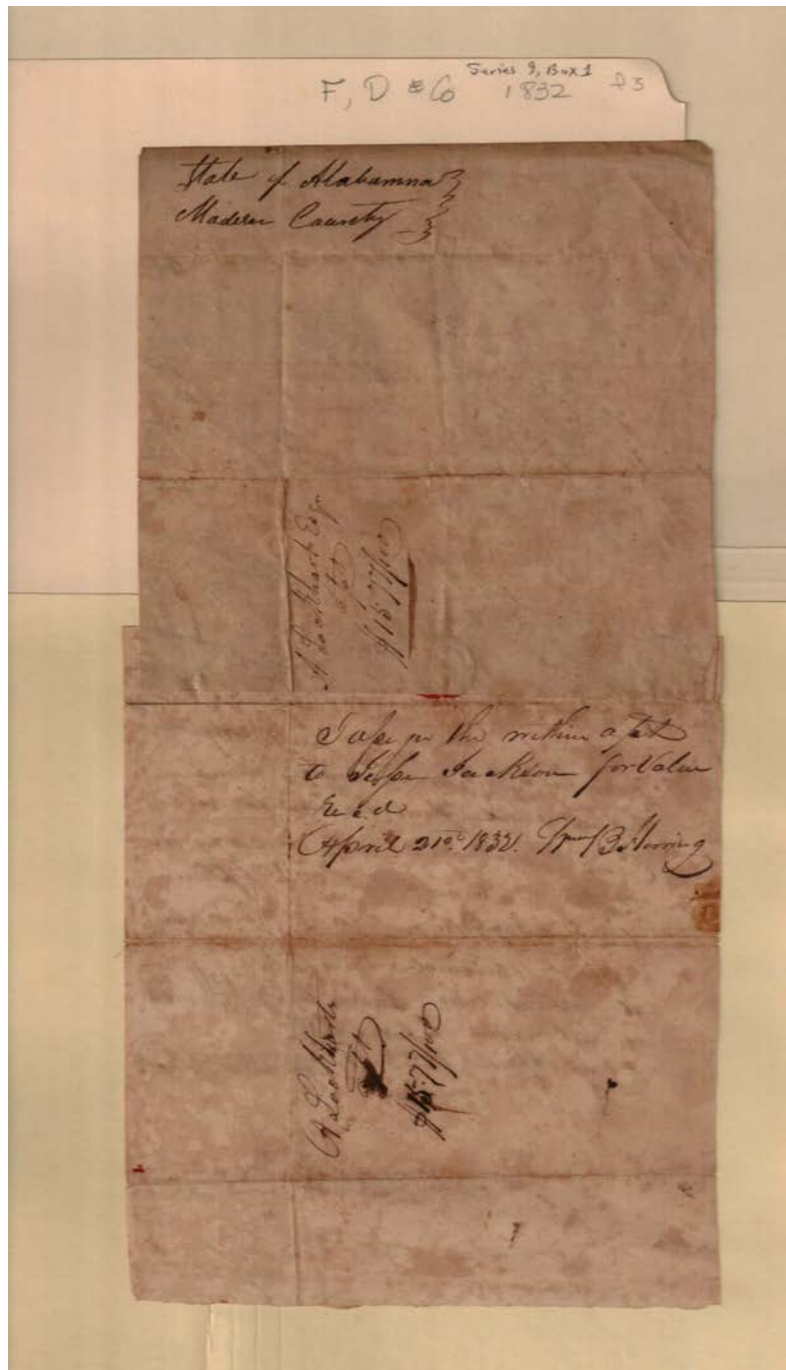 Series 9, Box 1
F, D #6 1832 P3
State of Alabamna
Madison County
A Lockhart Esqr
$15.77/100
I assign the within
to Jesse Jackson for Value
Recd
April 21st 1832. B Herring
A Lockhart
$15.77/100